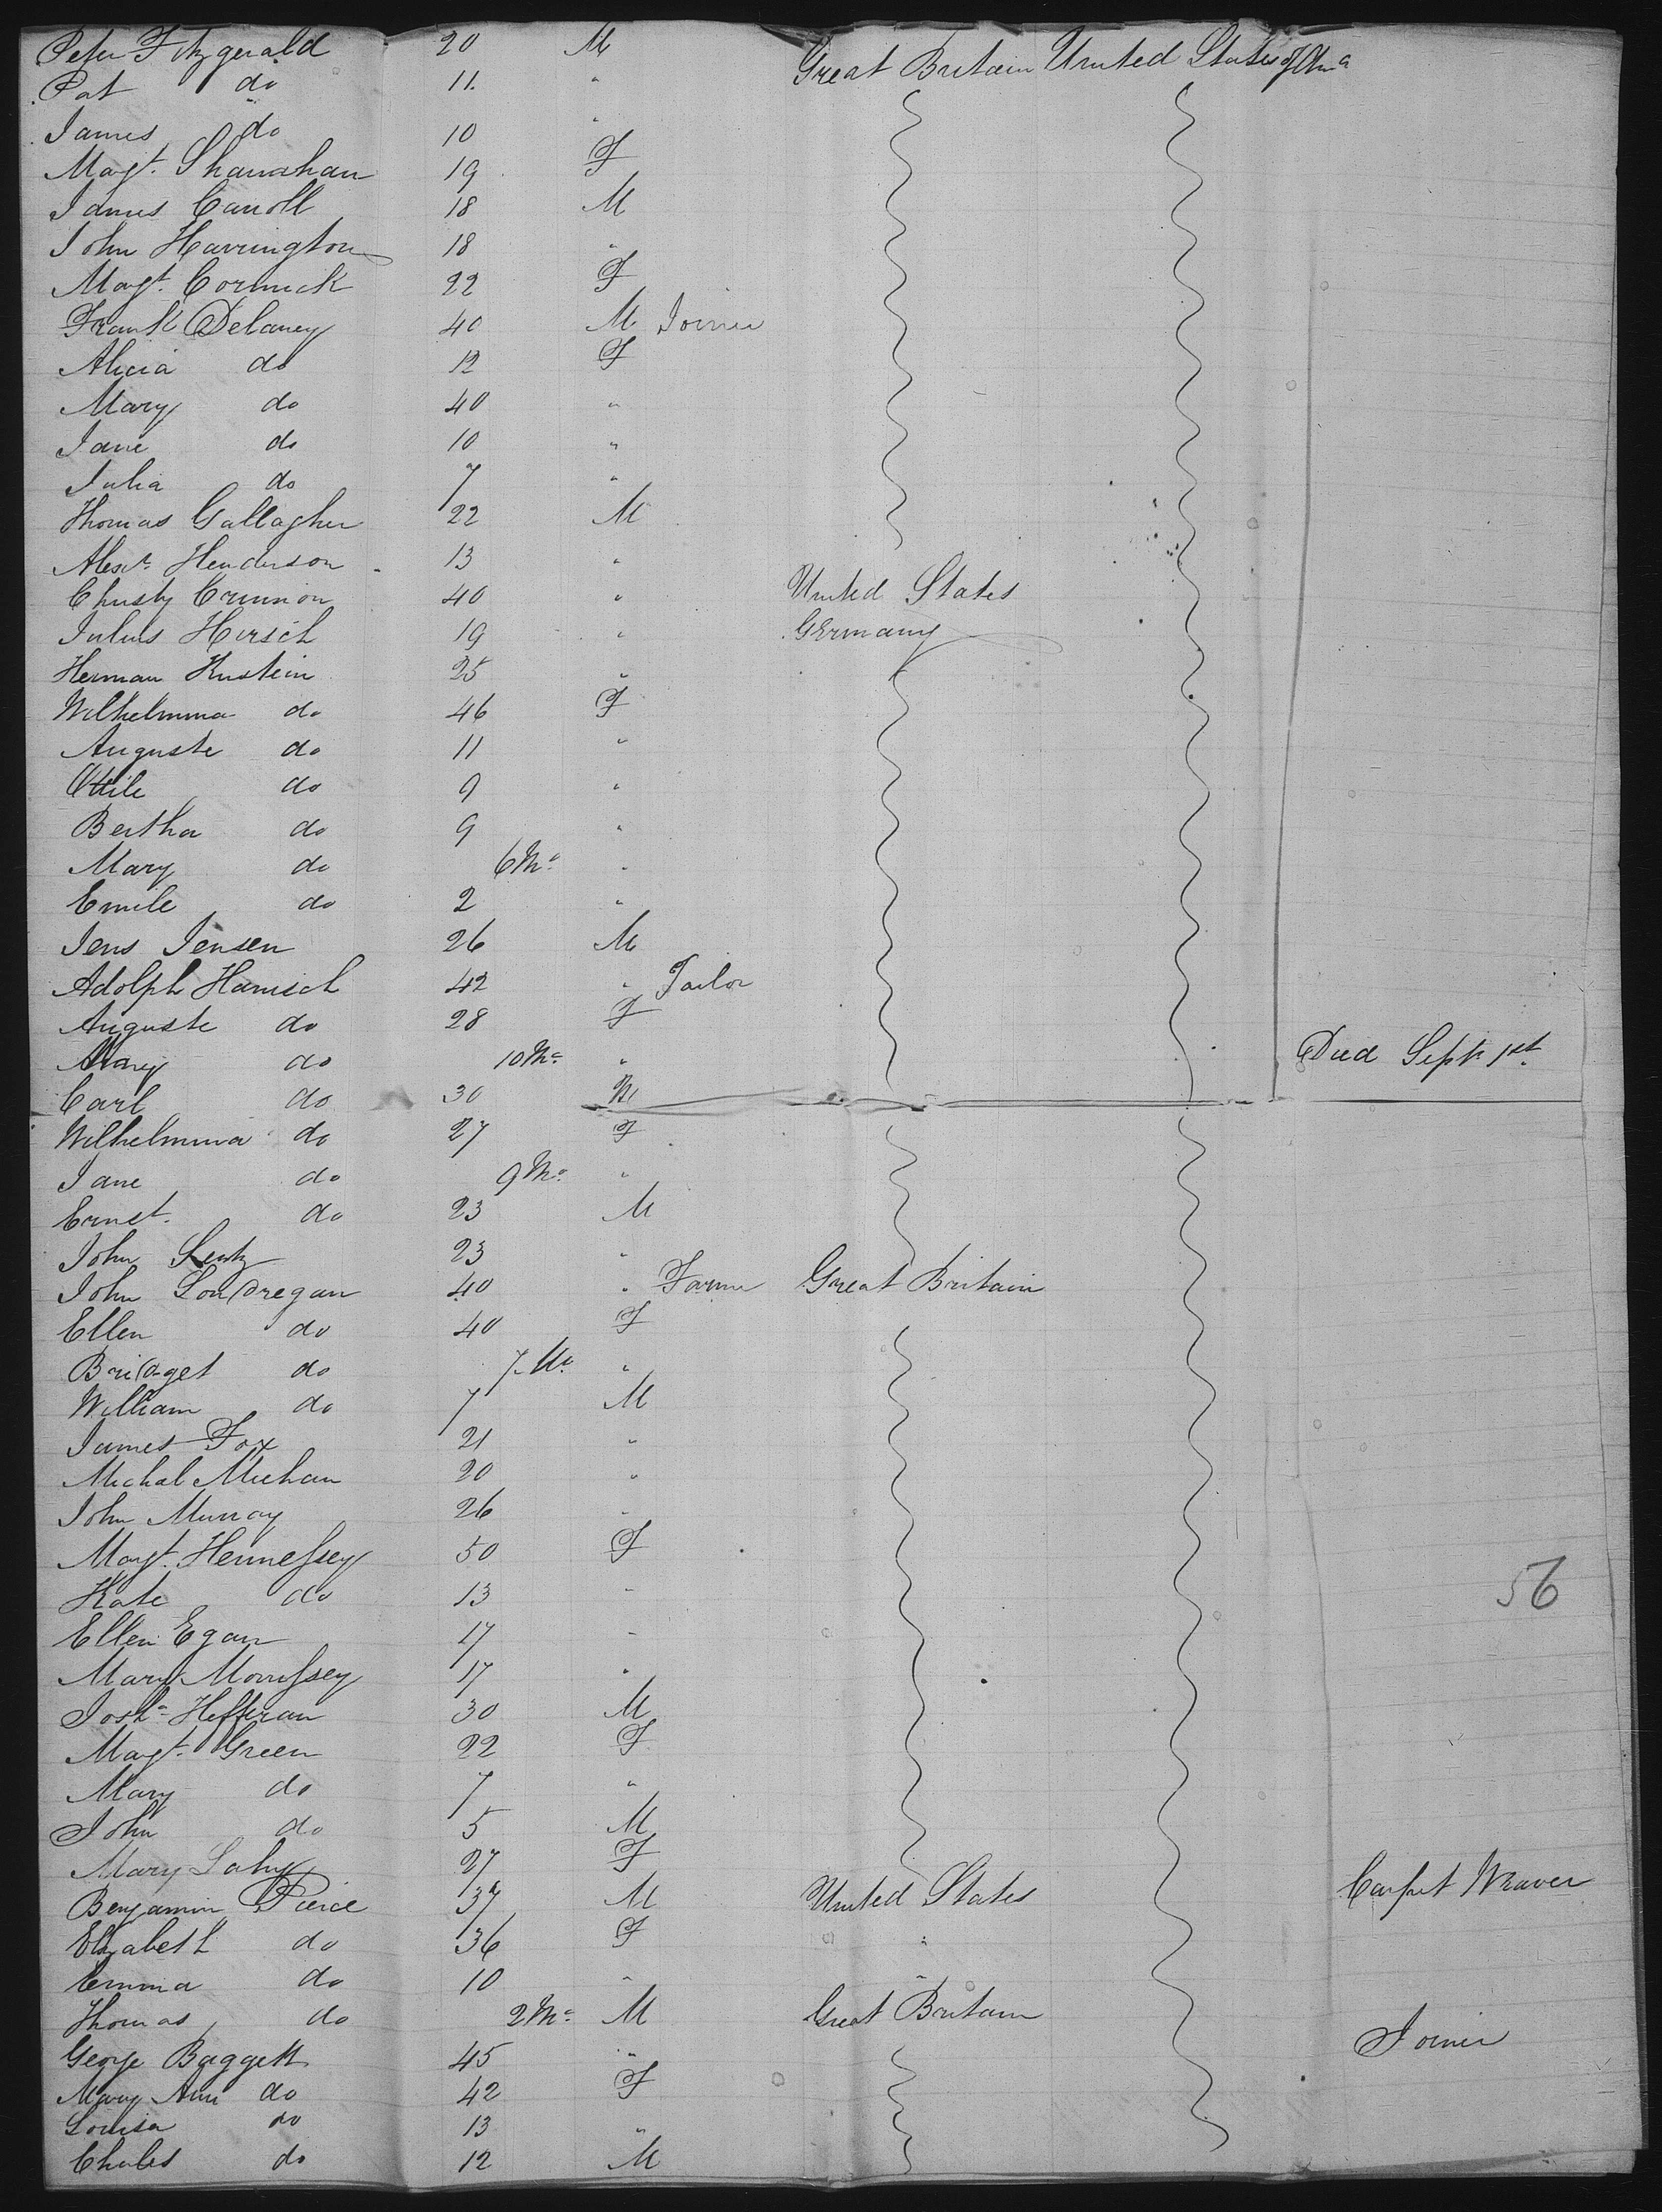 Peter Fitzgerald 20 M Great Britain United States of Ama
Pat do 11. "
James do 10 "
Magt. Shanahan 19 F
James Carroll 18 M
John Harrington 18 "
Magt. Cormick 22 F
Frank Delaney 40 M Joiner
Alicia do 12 F
Mary do 40 "
Jane do 10 "
Julia do 7 "
Thomas Gallagher 22 M
Alexr. Henderson 13 "
Christy Crinnion 40 " United States
Julius Hirsch 19 " Germany
Herman Kustein 25 "
Wilhelmina do 46 F
Auguste do 11 "
Ottile do 9 "
Bertha do 9 "
Mary do 6 Mo "
Emile do 2 "
Jens Jensen 26 M
Adolph Hanisch 42 " Tailor
Auguste do 28 F
Mary do 10 Mo " Died Sept 1st.
Carl do 30 M
Wilhelmina do 27 F
Jane do 9 Mo "
Ernst. do 23 M
John 23 "
John Londregan 40 " Farmer Great Britain
Ellen do 40 F
Bridget do 7 Mo "
William do 7 M
James Fox 21 "
Michal Meehan 20 "
John Murray 26 "
Magt. Hennessey 50 F
Kate do 13 " 56
Ellen Egan 17 "
Mary Morrissey 17 "
Josh. Heffernan 30 M
Magt. Green 22 F
Mary do 7 "
John do 5 M
Mary Lahy 27 F
Benjamin Pierce 37 M United States Carpet Weaver
Elizabeth do 36 F "
Emma do 10 " "
Thomas do 2 Mo M Great Britain
George Baggett 45 " Joiner
Mary Ann do 42 F
Louisa do 13 "
Charles do 12 M